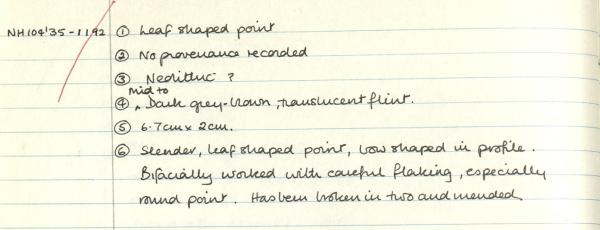 NH104'35-1192 ① Leaf shaped point
② No provenance recorded
③ Neolithic ?
mid to
④ ^ Dark grey-brown, translucent flint.
⑤ 6.7cm x 2cm.
⑥ Slender, leaf shaped point, bow shaped in profile.
Bifacially worked with careful flaking, especially
round point. Has been broken in two and mended.